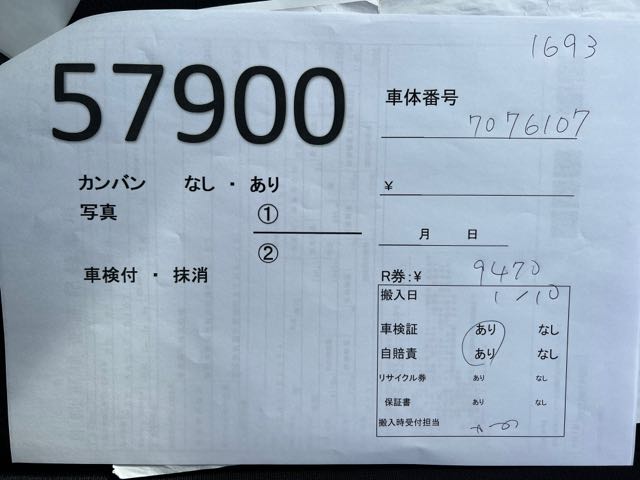 1693
57900
車体番号
7076107
カンバン なし ・ あり
¥
写真 ①
②
月 日
車検付 ・ 抹消
R券:¥ 9470
搬入日 1/10
車検証 あり なし
自賠責 あり なし
リサイクル券 あり なし
保証書 あり なし
搬入時受付担当